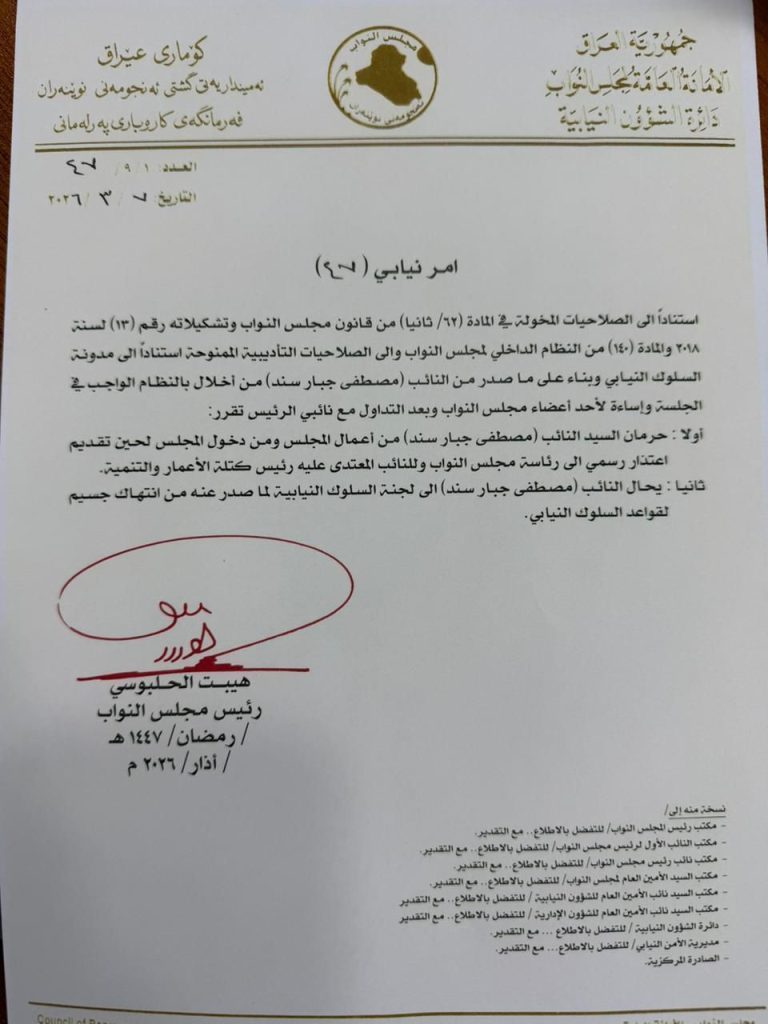 جمهورية العراق
الامانة العامة لمجلس النواب
دائرة الشؤون النيابية
مجلس النواب
ئەنجومەنی نوێنەران
كۆماری عێراق
ئەمینداریەتی گشتی ئەنجومەنی نوێنەران
فەرمانگەی کاروباری پەرلەمانی
العدد: ١ / ٩ / ٤٧
التاريخ: ٧ / ٣ / ٢٠٢٦
امر نيابي (٤٧)
استناداً الى الصلاحيات المخولة في المادة (٦٢/ ثانيا) من قانون مجلس النواب وتشكيلاته رقم (١٣) لسنة
٢٠١٨ والمادة (١٤٠) من النظام الداخلي لمجلس النواب والى الصلاحيات التأديبية الممنوحة استناداً الى مدونة
السلوك النيابي وبناء على ما صدر من النائب (مصطفى جبار سند) من أخلال بالنظام الواجب في
الجلسة وإساءة لأحد أعضاء مجلس النواب وبعد التداول مع نائبي الرئيس تقرر:
أولا : حرمان السيد النائب (مصطفى جبار سند) من أعمال المجلس ومن دخول المجلس لحين تقديم
اعتذار رسمي الى رئاسة مجلس النواب وللنائب المعتدى عليه رئيس كتلة الأعمار والتنمية.
ثانيا : يحال النائب (مصطفى جبار سند) الى لجنة السلوك النيابية لما صدر عنه من انتهاك جسيم
لقواعد السلوك النيابي.
هيبت الحلبوسي
رئيس مجلس النواب
/ رمضان/ ١٤٤٧ هـ
/ أذار/ ٢٠٢٦ م
نسخة منه إلى/
- مكتب رئيس المجلس النواب/ للتفضل بالاطلاع.. مع التقدير.
- مكتب النائب الأول لرئيس مجلس النواب/ للتفضل بالاطلاع.. مع التقدير.
- مكتب نائب رئيس مجلس النواب/ للتفضل بالاطلاع.. مع التقدير.
- مكتب السيد الأمين العام لمجلس النواب/ للتفضل بالاطلاع.. مع التقدير.
- مكتب السيد نائب الأمين العام للشؤون النيابية / للتفضل بالاطلاع.. مع التقدير
- مكتب السيد نائب الأمين العام للشؤون الإدارية / للتفضل بالاطلاع.. مع التقدير
- دائرة الشؤون النيابية / للتفضل بالاطلاع ... مع التقدير.
- مديرية الأمن النيابي/ للتفضل بالاطلاع... مع التقدير.
- الصادرة المركزية.